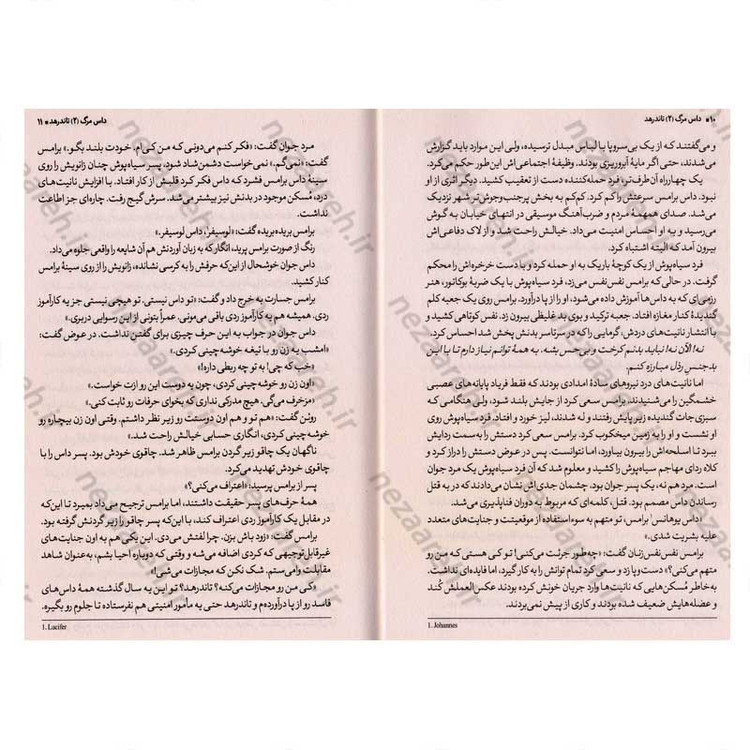 ۱۰ ■ داس مرگ (۲) تاندرهد
و می‌گفتند که از یک بی‌سروپا با لباس مبدل ترسیده، ولی این موارد باید گزارش
می‌شدند، حتی اگر مایهٔ آبروریزی بودند. وظیفهٔ اجتماعی‌اش این‌طور حکم می‌کرد.
یک چهارراه آن طرف‌تر، فرد حمله‌کننده دست از تعقیب کشید. دیگر اثری از او
نبود. داس برامس سرعتش را کم کرد. کم‌کم به بخش پرجنب‌وجوش‌تر شهر نزدیک
می‌شد. صدای همهمهٔ مردم و ضرب‌آهنگ موسیقی در انتهای خیابان به گوش
می‌رسید و به او احساس امنیت می‌داد. خیالش راحت شد و از لاک دفاعی‌اش
بیرون آمد که البته اشتباه کرد.
فرد سیاه‌پوش از یک کوچهٔ باریک به او حمله کرد و با دست خرخره‌اش را محکم
گرفت. در حالی‌که برامس نفس‌نفس می‌زد، فرد سیاه‌پوش با یک ضربهٔ بوکاتور، هنر
رزمی‌ای که به داس‌ها آموزش داده می‌شود، او را از پا درآورد. برامس روی یک جعبه کلم
گندیدهٔ کنار مغازه افتاد. جعبه ترکید و بوی بد غلیظی بیرون زد. نفس کوتاهی کشید و
با انتشار نانیت‌های دردش، گرمایی را که در سرتاسر بدنش پخش شد احساس کرد.
نه! الان نه! نباید بدنم کرخت و بی‌حس بشه. به همهٔ توانم نیاز دارم تا با این
بدجنسِ رذل مبارزه کنم.
اما نانیت‌های درد نیروهای سادهٔ امدادی بودند که فقط فریاد پایانه‌های عصبی
خشمگین را می‌شنیدند. برامس سعی کرد از جایش بلند شود، ولی هنگامی‌که
سبزی‌جات گندیده زیر پایش رفتند و له شدند، لیز خورد و افتاد. فرد سیاه‌پوش روی
او نشست و او را به زمین میخکوب کرد. برامس سعی کرد دستش را به سمت ردایش
ببرد تا اسلحه‌اش را بیرون بیاورد، اما نتوانست. پس در عوض دستش را دراز کرد و
کلاه ردای مهاجم سیاه‌پوش را کشید و معلوم شد که آن فرد سیاه‌پوش یک مرد جوان
است. مرد هم نه، یک پسر جوان بود. چشمان جدی‌اش نشان می‌دادند که در به قتل
رساندن داس مصمم بود. قتل، کلمه‌ای که مربوط به دوران فناپذیری می‌شد.
«داس یوهانس¹ برامس، تو متهم به سوءاستفاده از موقعیتت و جنایت‌های متعدد
علیه بشریت شدی.»
برامس نفس‌نفس‌زنان گفت: «چه‌طور جرئت می‌کنی! تو کی هستی که من رو
متهم می‌کنی؟» دست‌وپا زد و سعی کرد تمام توانش را به کار گیرد، اما فایده‌ای نداشت.
به‌خاطر مُسکن‌هایی که نانیت‌ها وارد جریان خونش کرده بودند عکس‌العملش کُند
و عضله‌هایش ضعیف شده بودند و کاری از پیش نمی‌بردند.
1. Johannes
داس مرگ (۲) تاندرهد ■ ۱۱
مرد جوان گفت: «فکر کنم می‌دونی که من کی‌ام. خودت بلند بگو.» برامس
گفت: «نمی‌گم.» نمی‌خواست دشمن‌شاد شود. پسر سیاه‌پوش چنان زانویش را روی
سینهٔ داس برامس فشرد که داس فکر کرد قلبش از کار افتاد. با افزایش نانیت‌های
درد، مُسکن موجود در بدنش نیز بیشتر می‌شد. سرش گیج رفت. چاره‌ای جز اطاعت
نداشت.
برامس بریده‌بریده گفت: «لوسیفر¹، داس لوسیفر.»
رنگ از صورت برامس پرید، انگار که به زبان آوردنش هم آن شایعه را واقعی جلوه می‌داد.
داس جوان خوشحال از این‌که حرفش را به کرسی نشانده، زانویش را از روی سینهٔ برامس
کنار کشید.
برامس جسارت به خرج داد و گفت: «تو داس نیستی. تو هیچی نیستی جز یه کارآموز
ردی. همیشه هم یه کارآموز ردی باقی می‌مونی. عمراً بتونی از این رسوایی دربری.»
داس جوان در جواب به این حرف چیزی برای گفتن نداشت. در عوض گفت:
«امشب یه زن رو با تیغه خوشه‌چینی کردی.»
«خب که چی! به تو چه ربطی داره!»
«اون زن رو خوشه‌چینی کردی، چون یه دوست این رو ازت خواست.»
«مزخرف می‌گی. هیچ مدرکی نداری که بخوای حرفات رو ثابت کنی.»
روئن گفت: «هم تو و هم اون دوستت رو زیر نظر داشتم. وقتی اون زن بیچاره رو
خوشه‌چینی کردی، انگاری حسابی خیالش راحت شد.»
ناگهان یک چاقو زیر گردن برامس ظاهر شد. چاقوی خودش بود. پسر داس را با
چاقوی خودش تهدید می‌کرد.
پسر از برامس پرسید: «اعتراف می‌کنی؟»
همهٔ حرف‌های پسر حقیقت داشتند، اما برامس ترجیح می‌داد بمیرد تا این‌که
در مقابل یک کارآموز ردی اعتراف کند، با این‌که پسر چاقو را زیر گردنش گرفته بود.
برامس گفت: «زود باش بزن. چرا لفتش می‌دی. این یکی هم به اون جنایت‌های
غیرقابل‌توجیهی که کردی اضافه می‌شه و وقتی که دوباره احیا بشم، به‌عنوان شاهد
مقابلت وامی‌ستم. شک نکن که مجازات می‌شی!»
«کی من رو مجازات می‌کنه؟ تاندرهد؟ تو این یه سال گذشته همهٔ داس‌های
فاسد رو از پا درآورده‌م و تاندرهد حتی یه مأمور امنیتی هم نفرستاده تا جلوم رو بگیره.
1. Lucifer
nezaareh.ir